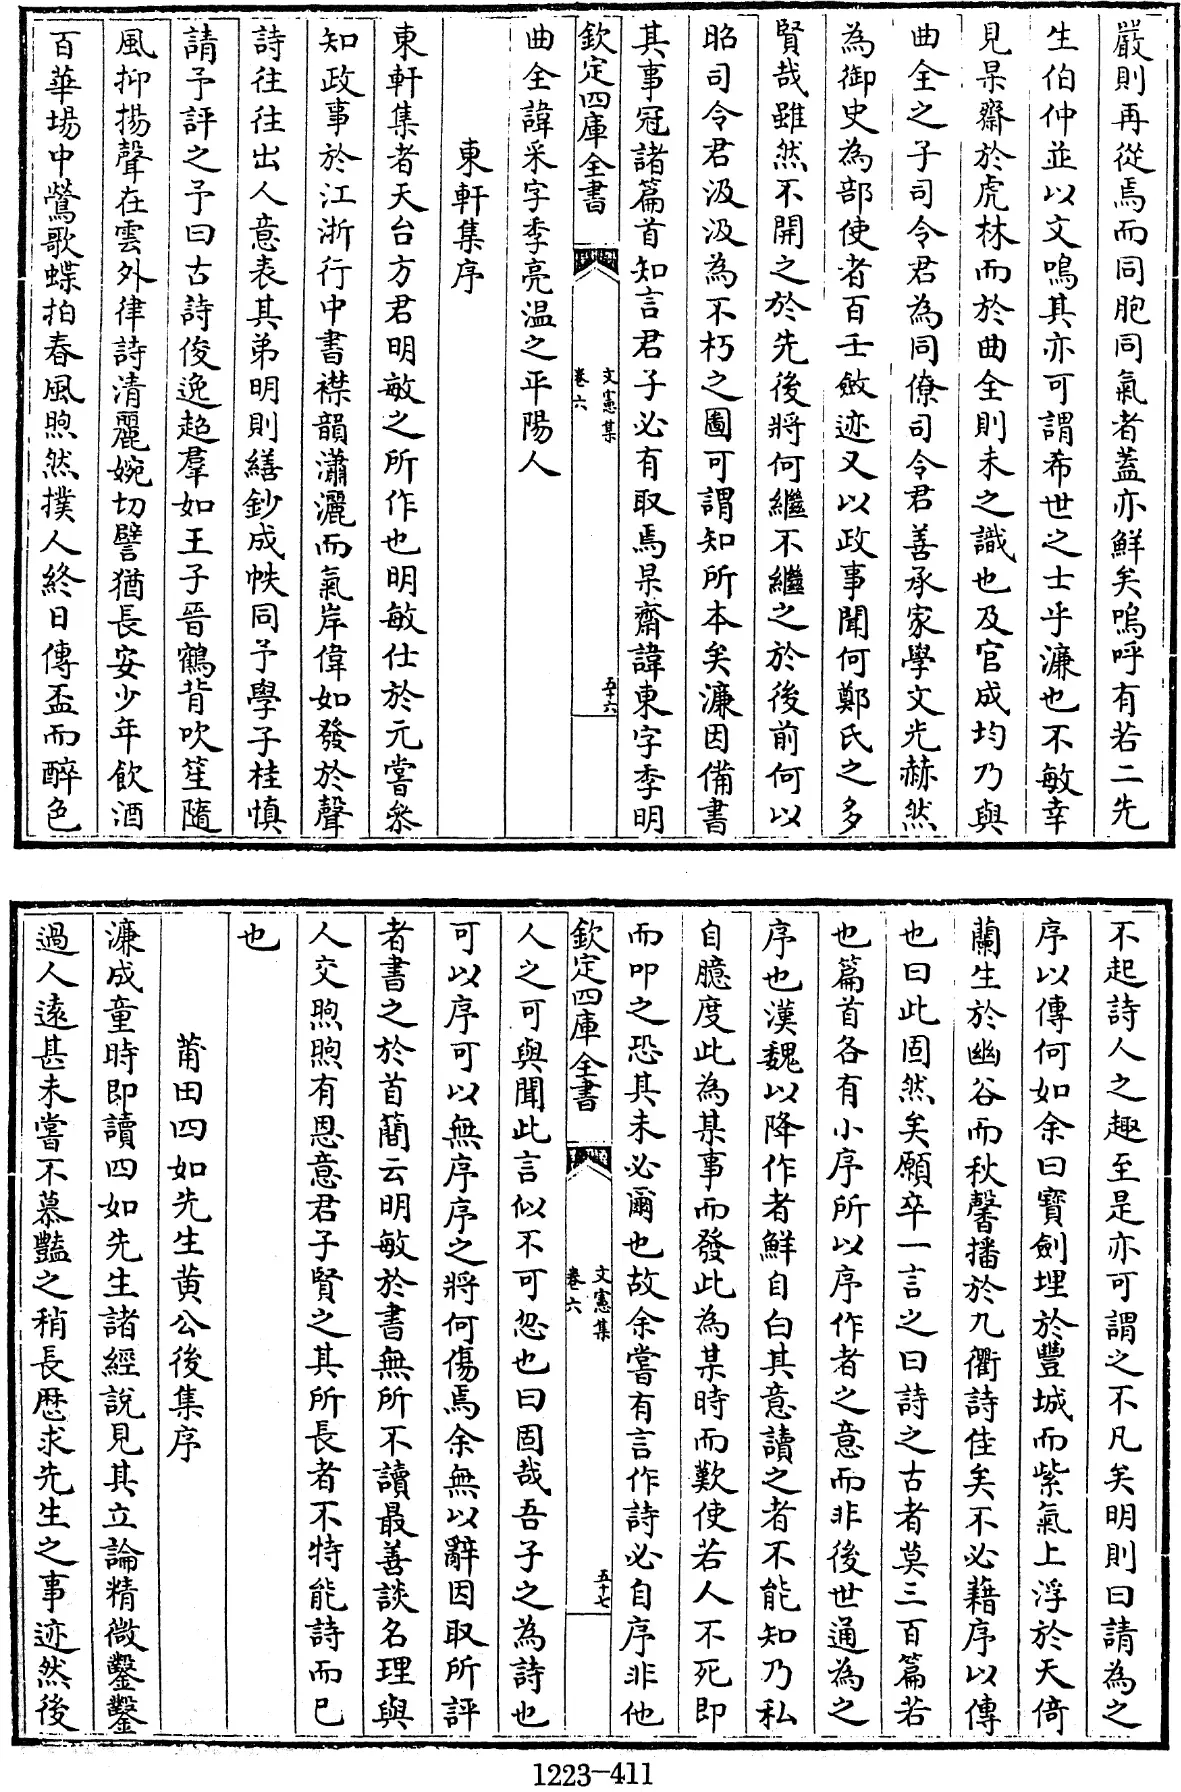 嚴則再從焉而同胞同氣者蓋亦鮮矣嗚呼有若二先
生伯仲並以文鳴其亦可謂希世之士乎濂也不敏幸
見杲齋於虎林而於曲全則未之識也及官成均乃與
曲全之子司令君為同僚司令君善承家學文光赫然
為御史為部使者百壬斂迹又以政事聞何鄭氏之多
賢哉雖然不開之於先後將何繼不繼之於後前何以
昭司令君汲汲為不朽之圖可謂知所本矣濂因備書
其事冠諸篇首知言君子必有取焉杲齋諱東字季明
欽定四庫全書
文憲集
卷六
五十六
曲全諱采字季亮温之平陽人
東軒集序
東軒集者天台方君明敏之所作也明敏仕於元嘗叅
知政事於江浙行中書襟韻瀟灑而氣岸偉如發於聲
詩往往出人意表其弟明則繕鈔成帙同予學子桂慎
請予評之予曰古詩俊逸超羣如王子晉鶴背吹笙隨
風抑揚聲在雲外律詩清麗婉切譬猶長安少年飲酒
百華場中鶯歌蝶拍春風煦然撲人終日傳盃而醉色
不起詩人之趣至是亦可謂之不凡矣明則曰請為之
序以傳何如余曰寶劍埋於豐城而紫氣上浮於天倚
蘭生於幽谷而秋馨播於九衢詩佳矣不必藉序以傳
也曰此固然矣願卒一言之曰詩之古者莫三百篇若
也篇首各有小序所以序作者之意而非後世通為之
序也漢魏以降作者鮮自白其意讀之者不能知乃私
自臆度此為某事而發此為某時而歎使若人不死即
而叩之恐其未必爾也故余嘗有言作詩必自序非他
欽定四庫全書
文憲集
卷六
五十七
人之可與聞此言似不可忽也曰固哉吾子之為詩也
可以序可以無序序之將何傷焉余無以辭因取所評
者書之於首簡云明敏於書無所不讀最善談名理與
人交煦煦有恩意君子賢之其所長者不特能詩而已
也
莆田四如先生黄公後集序
濂成童時即讀四如先生諸經說見其立論精微鑿鑿
過人遠甚未嘗不慕豔之稍長歴求先生之事迹然後
1223-411